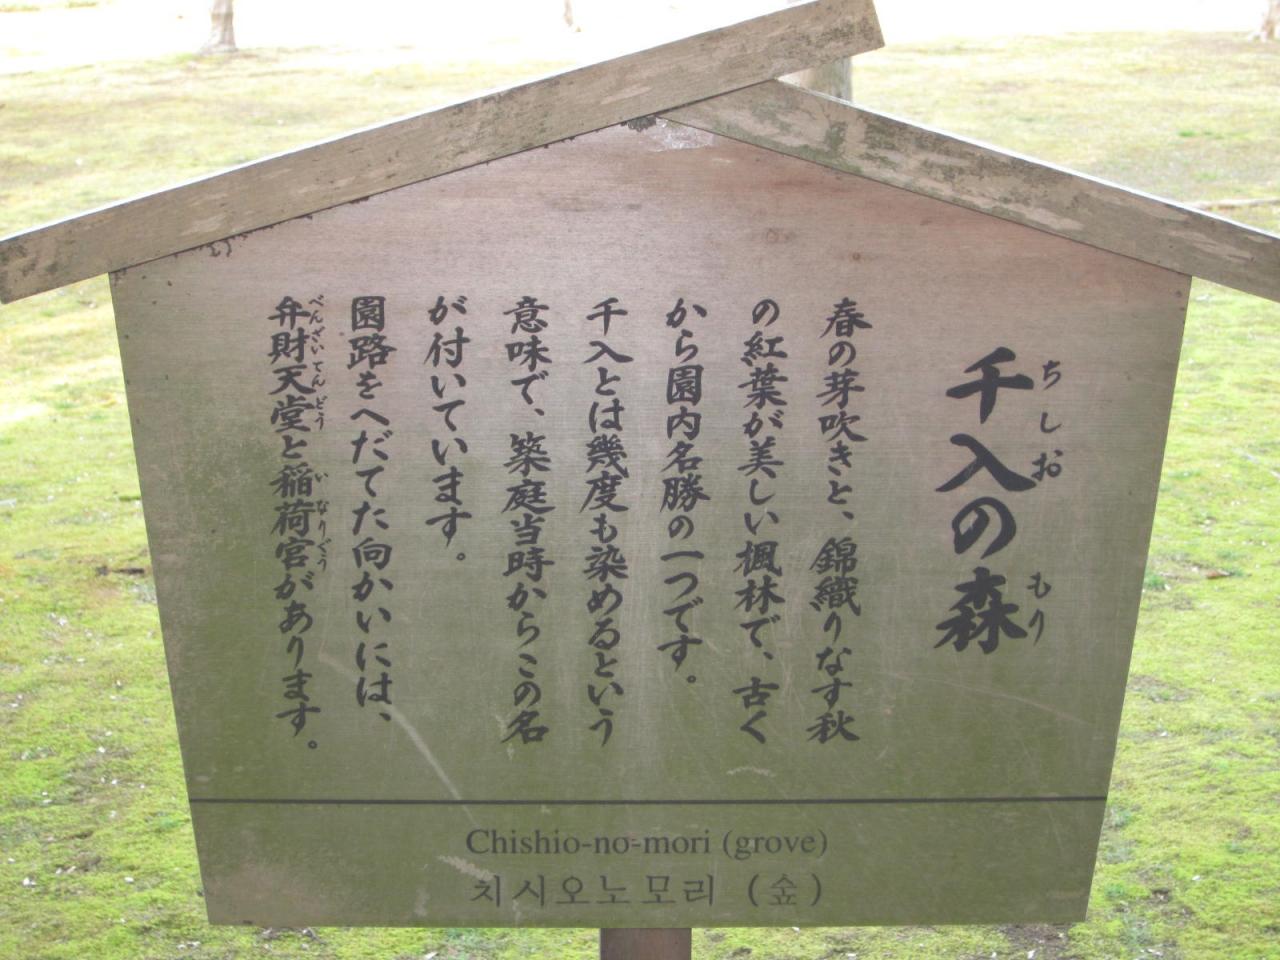 千入の森
ちしお もり
春の芽吹きと、錦織りなす秋
の紅葉が美しい楓林で、古く
から園内名勝の一つです。
千入とは幾度も染めるという
意味で、築庭当時からこの名
が付いています。
園路をへだてた向かいには、
弁財天堂と稲荷宮があります。
べんざいてんどう いなりぐう
Chishio-no-mori (grove)
치시오노모리 (숲)